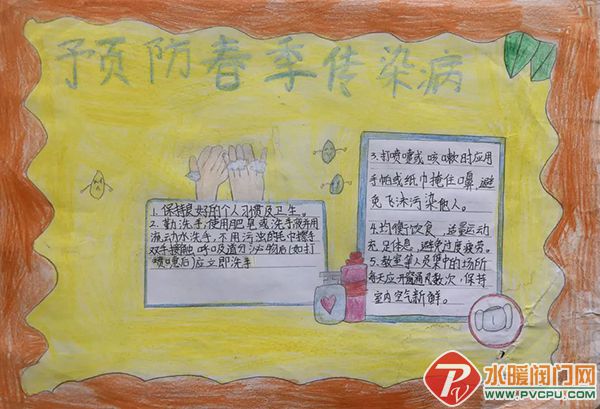 预防春季传染病
1. 保持良好的个人习惯及卫生。
2. 勤洗手,使用肥皂或洗手液并用
流动水洗手,不用污浊的毛巾擦手
双手接触呼吸道分泌物后(如打
喷嚏后)应立即洗手
3. 打喷嚏或咳嗽时应用
手帕或纸巾掩住口鼻,避
免飞沫污染他人。
4. 均衡饮食、适量运动
充足休息,避免过度疲劳。
5. 教室等人员集中的场所
每天应开窗通风数次,保持
室内空气新鲜。
水暖阀门网
WWW.PVCPU.COM